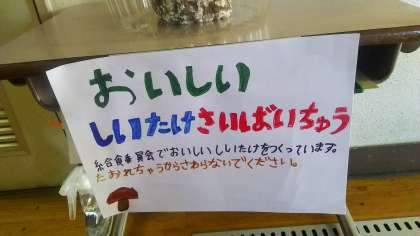 おいしい
しいたけさいばいちゅう
給食委員会でおいしいしいたけをつくっています。
たおれちゃうからさわらないでください。